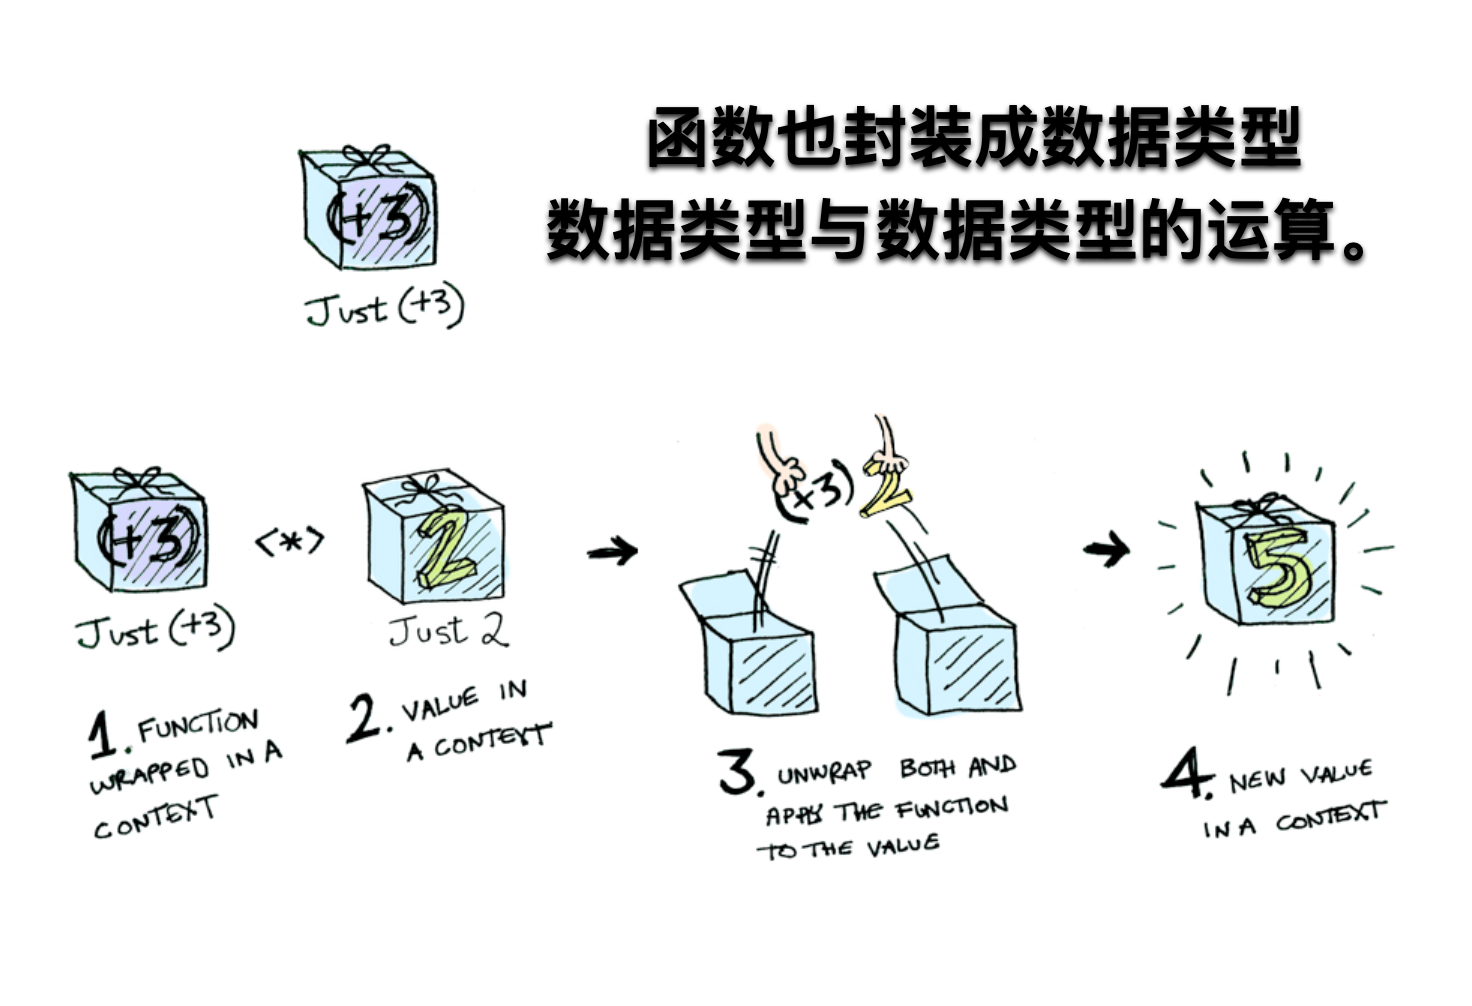 函数也封装成数据类型
数据类型与数据类型的运算。
(+3)
Just (+3)
(+3)
<*>
2
(+3)
2
5
Just (+3)
Just 2
1. FUNCTION
WRAPPED IN A
CONTEXT
2. VALUE IN
A CONTEXT
3. UNWRAP BOTH AND
APPLY THE FUNCTION
TO THE VALUE
4. NEW VALUE
IN A CONTEXT